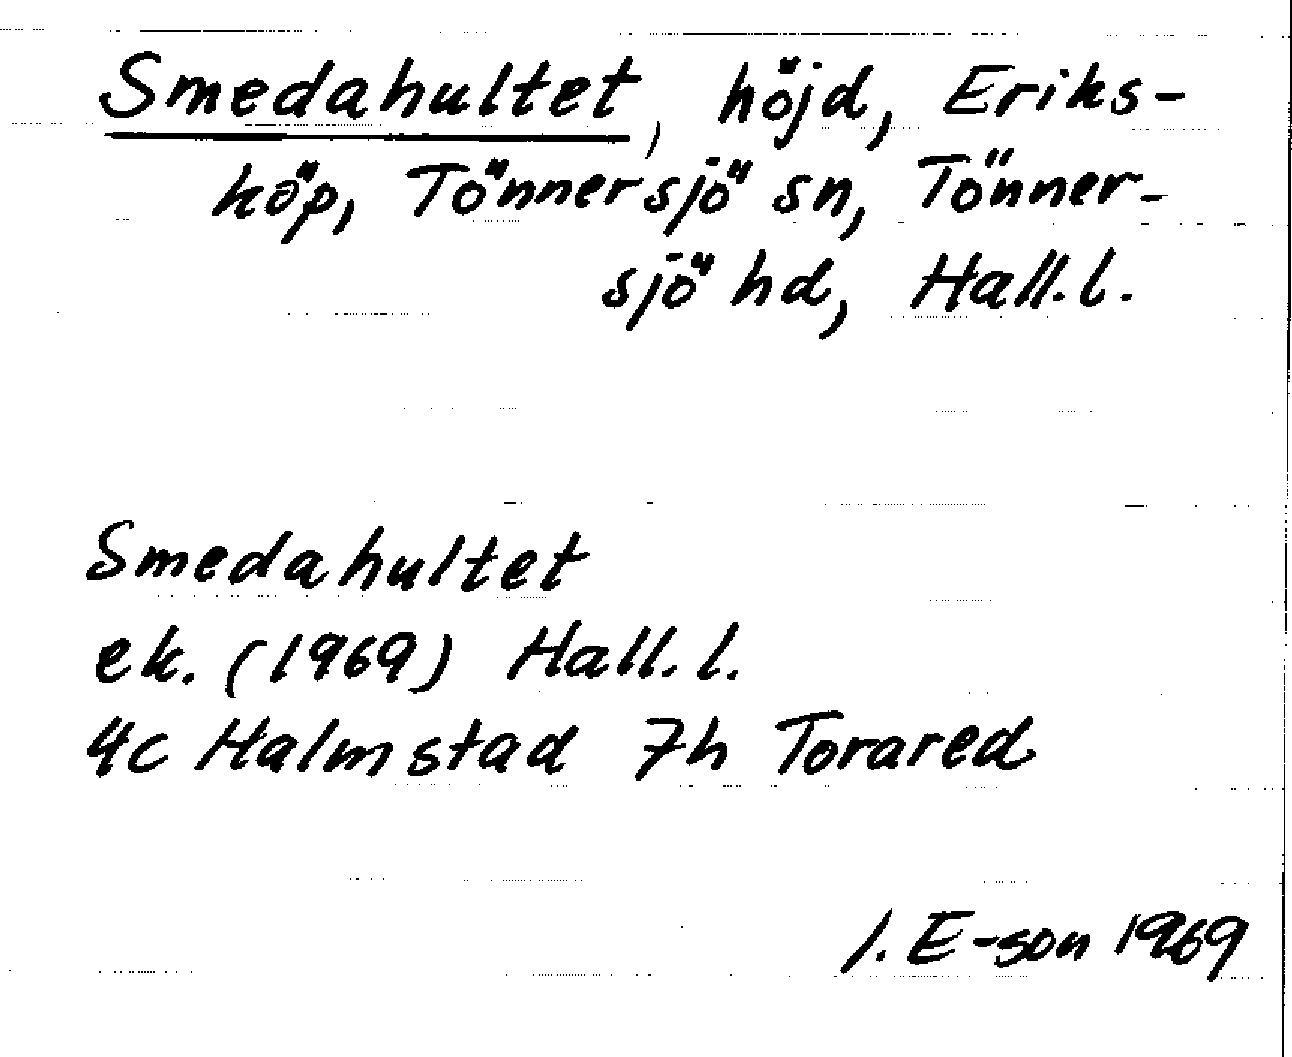 Smedahultet, höjd, Eriks-
köp, Tönnersjö sn, Tönner-
sjö hd, Hall. l.
Smedahultet
ek. (1969) Hall. l.
4c Halmstad 7h Torared
I. E-son 1969